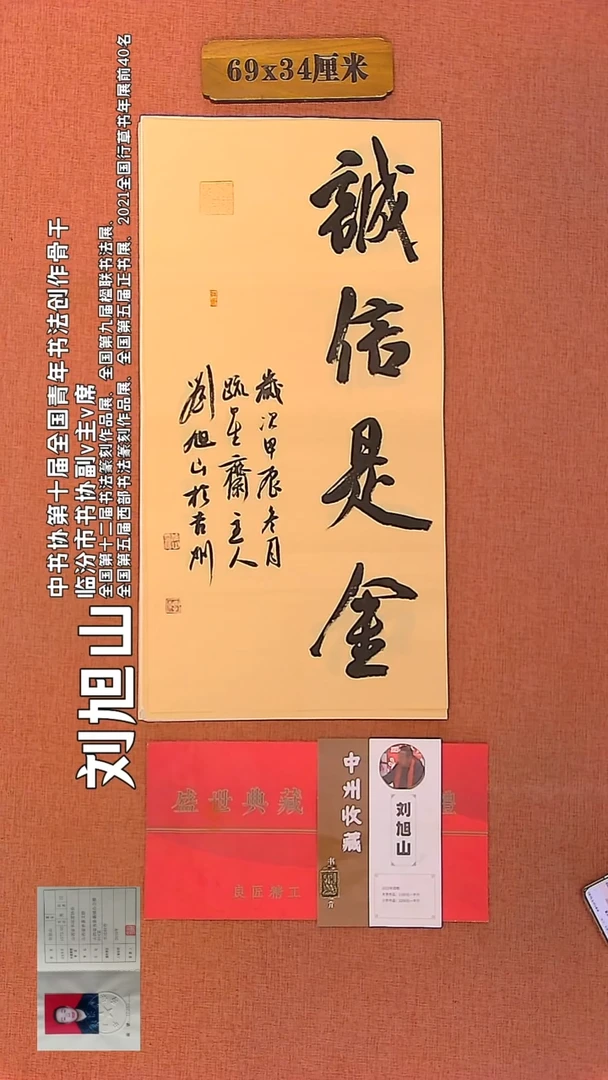 69x34厘米
誠信是金
歲次甲辰冬月
疏星齋主人
劉旭山於吉州
中书协第十届全国青年书法创作骨干
临汾市书协副v主v席
全国第十二届书法篆刻作品展、全国第九届楹联书法展、
全国第五届西部书法篆刻作品展、全国第五届正书展、2021全国行草书年展前40名
刘旭山
盛世典藏
良匠精工
中州收藏
刘旭山